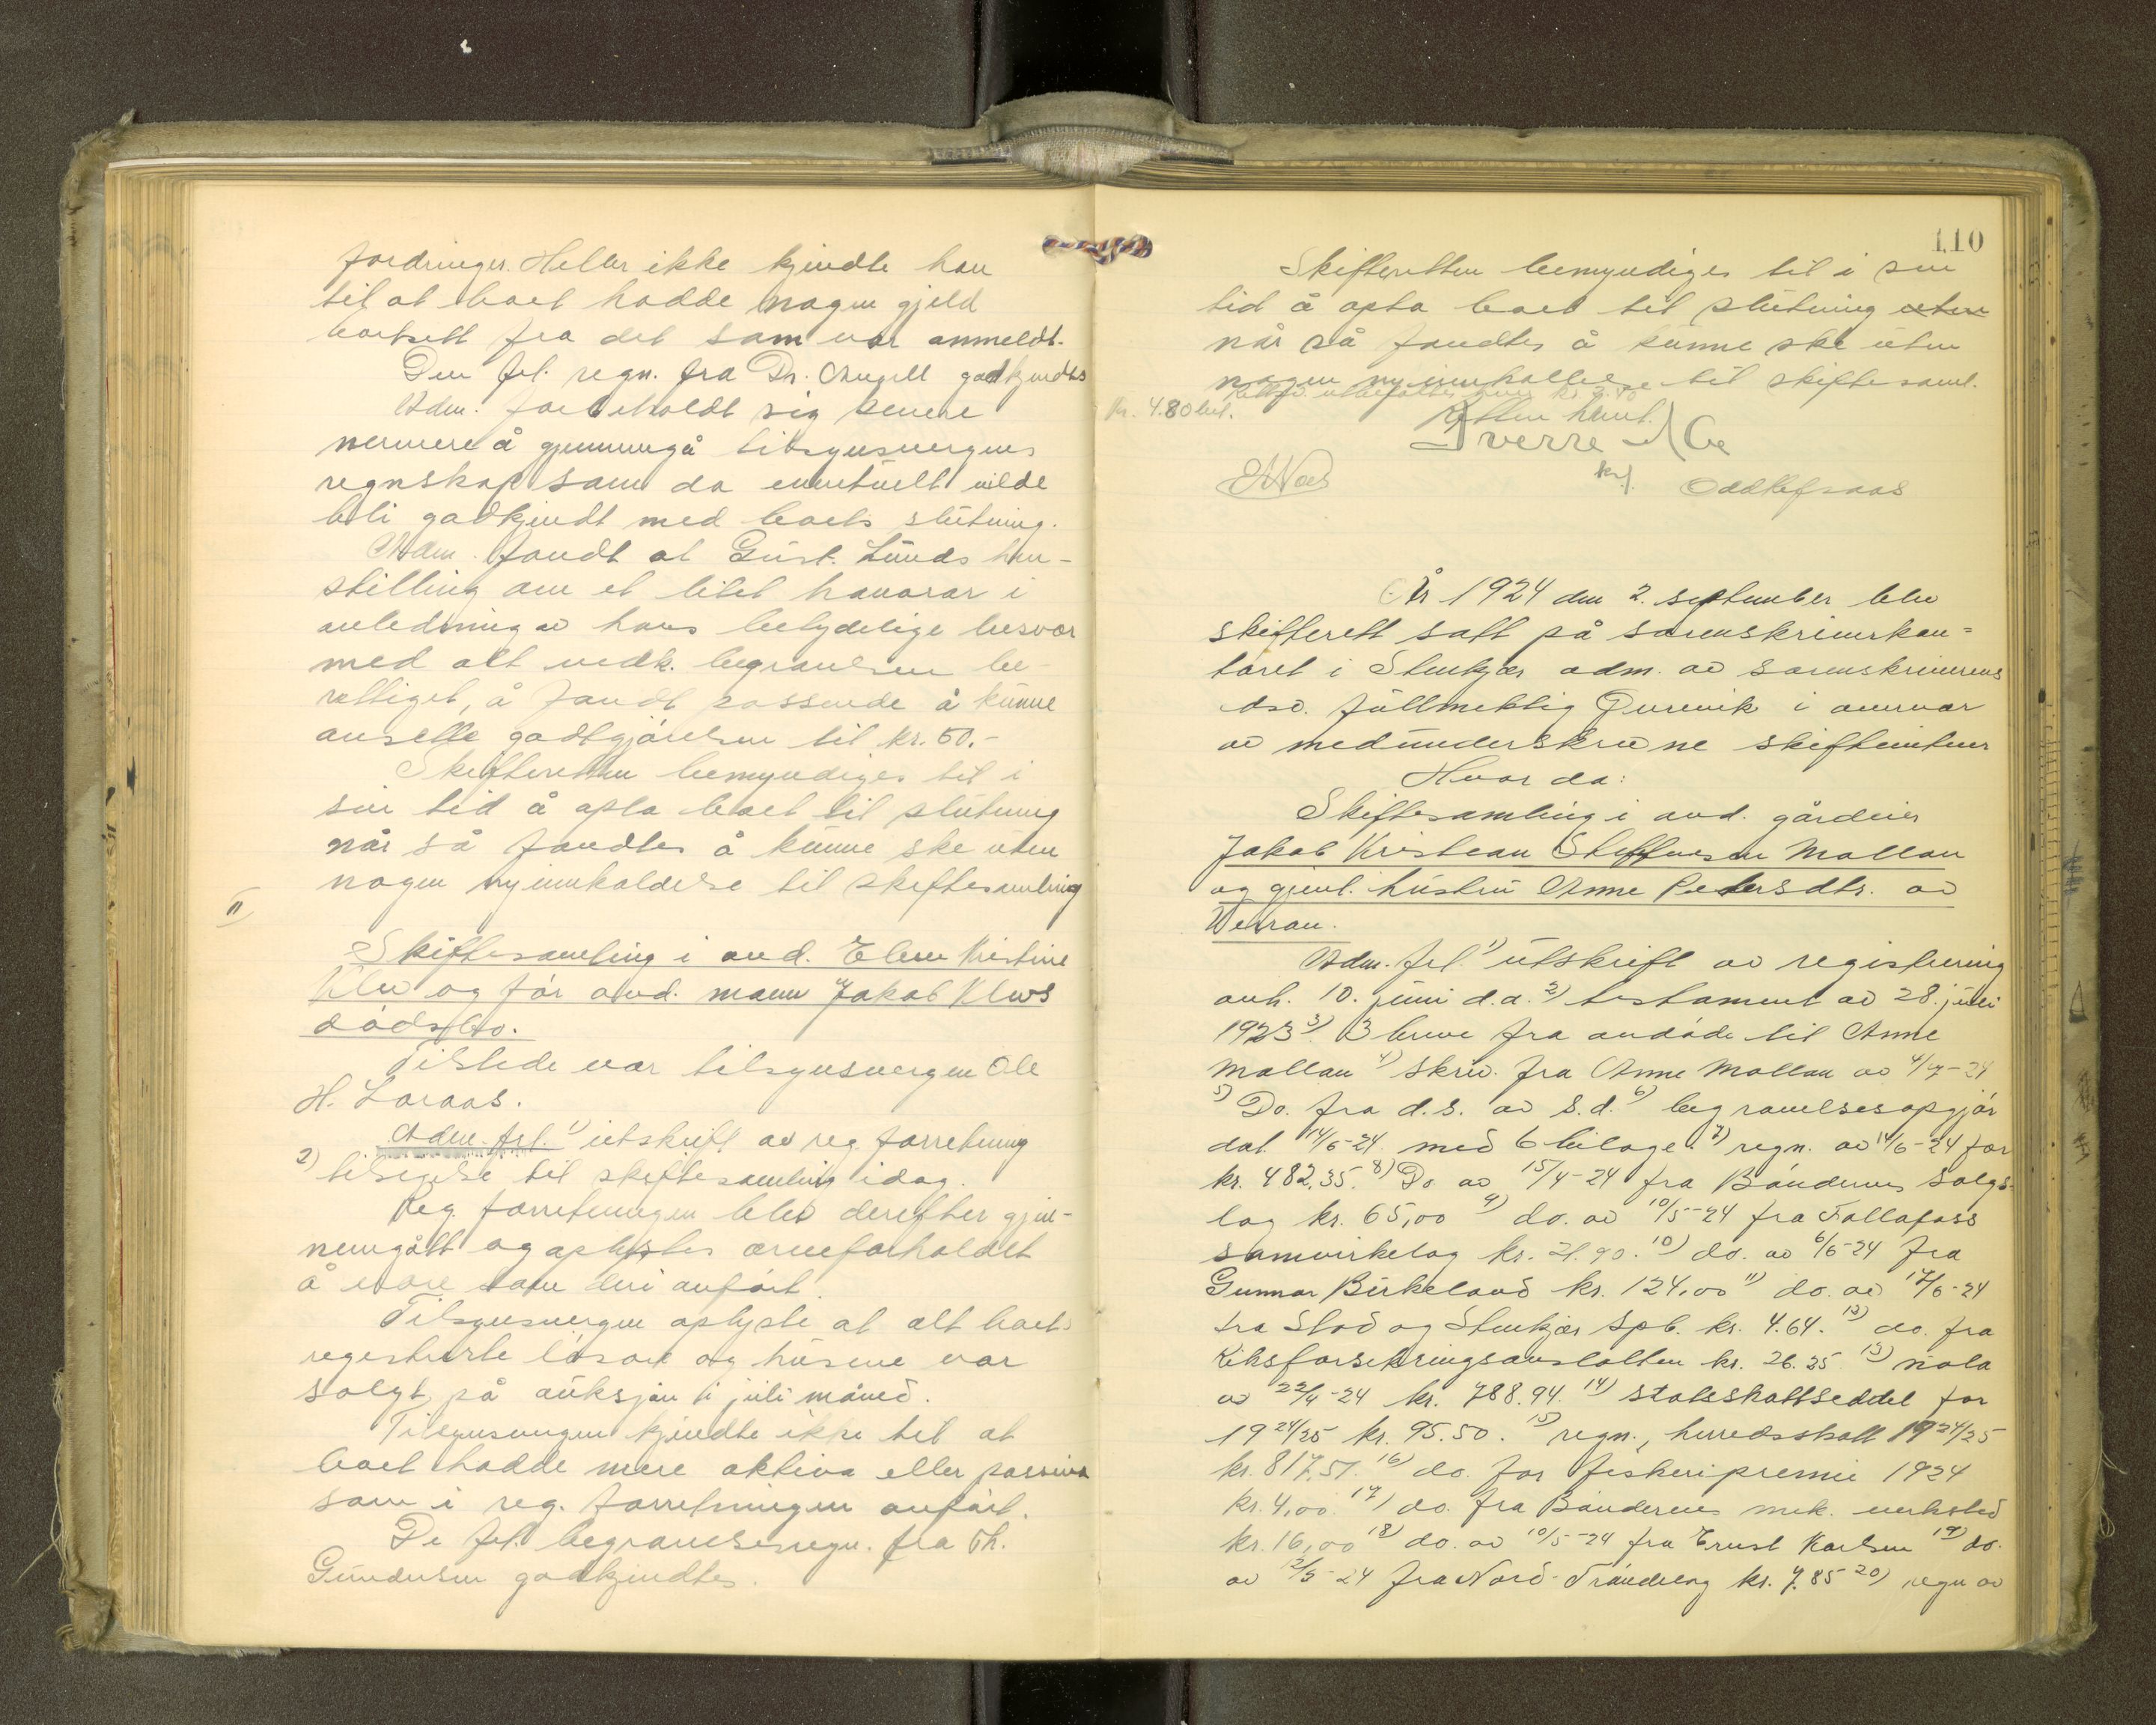 fordringer. Heller ikke kjendte han
til at boet hadde nogen gjeld
bortsett fra det som var anmeldt.
Den frl. regn. fra Dr. Angell godkjendtes
Adm. forbeholdt sig senere
nermere å gjennemgå tilsynsvergens
regnskap som da eventuelt vilde
bli godkjendt med boets slutning.
Adm. fandt at Gust. Lunds hen-
stilling om et litet honorar i
anledning av hans betydelige besvær
med alt vedk. begravelsen be-
rettiget, å fandt passende å kunne
ansette godtgjørelsen til kr. 50.-
Skifteretten bemyndiges til i
sin tid å opta boet til slutning
når så fandtes å kunne ske uten
nogen ny innkaldelse til skiftesamling
II
Skiftesamling i avd. Elen Kristine
Klev og før avd. mann Jakob Klevs
dødsbo.
Tilstede var tilsynsvergen Ole
H. Laraas.
Adm. frl. 1) utskrift av reg. forretning
2) tilsigelse til skiftesamling idag.
Reg. forretningen blev derefter gjen-
nemgått og oplystes arveforholdet
å være som deri anført.
Tilsynsvergen oplyste at alt boets
registrerte løsøre og husene var
solgt på auksjon i juli måned.
Tilsynsvergen kjendte ikke til at
boet hadde mere aktiva eller passiva
som i reg. forretningen anført.
De frl. begravelsesregn. fra Th.
Gundersen godkjendtes.
110
Skifteretten bemyndiges til i sin
tid å opta boet til slutning uten
når så fandtes å kunne ske uten
nogen ny innkallelse til skiftesaml.
kr. 4.80 bet.
Retten hevet.
Sverre
Oddlef
År 1924 den 2. september blev
skifterett satt på sorenskriverkon-
toret i Stenkjær adm. av sorenskriverens
edsv. fullmektig Gurvik i overvær
av medunderskrevne skiftevitner
Hvor da:
Skiftesamling i avd. gårdeier
Jakob Kristian Steffensen Mollan
og gjenl. hustru Anne Petersdtr. av
Verran.
Adm. frl. 1) utskrift av registrering
avh. 10. juni d.a. 2) testament av 28. juli
1923 3) 3 breve fra avdøde til Anne
Mollan 4) skriv. fra Anne Mollan av 4/7-24
5) Do. fra d.s. av s.d. 6) begravelsesopgjør
dat 14/6-24 med 6 bilage 7) regn. av 14/6-24 for
kr. 482.35. 8) Do av 15/4-24 fra Bøndernes Salgs-
lag kr. 65,00 9) do. av 10/5-24 fra Follafoss
samvirkelag kr. 21.90. 10) do. av 6/6-24 fra
Gunnar Birkeland kr. 124,00 11) do. av 17/6-24
fra Stod og Stenkjær Spb. kr. 4.64. 12) do. fra
Riksforsikringsanstalten kr. 26.35 13) nota
av 22/4-24 kr. 788.94. 14) Statsskattseddel for
1924/25 kr. 95.50. 15) regn., herredsskatt 1924/25
kr. 817.51. 16) do. for fiskeripremie 1924
kr. 4,00 17) do. fra Bøndernes mek. verksted
kr. 16,00 18) do. av 10/5-24 fra Ernst Karlsen 19) do.
av 12/5-24 fra Nord-Trøndelag kr. 7.85 20) regn av